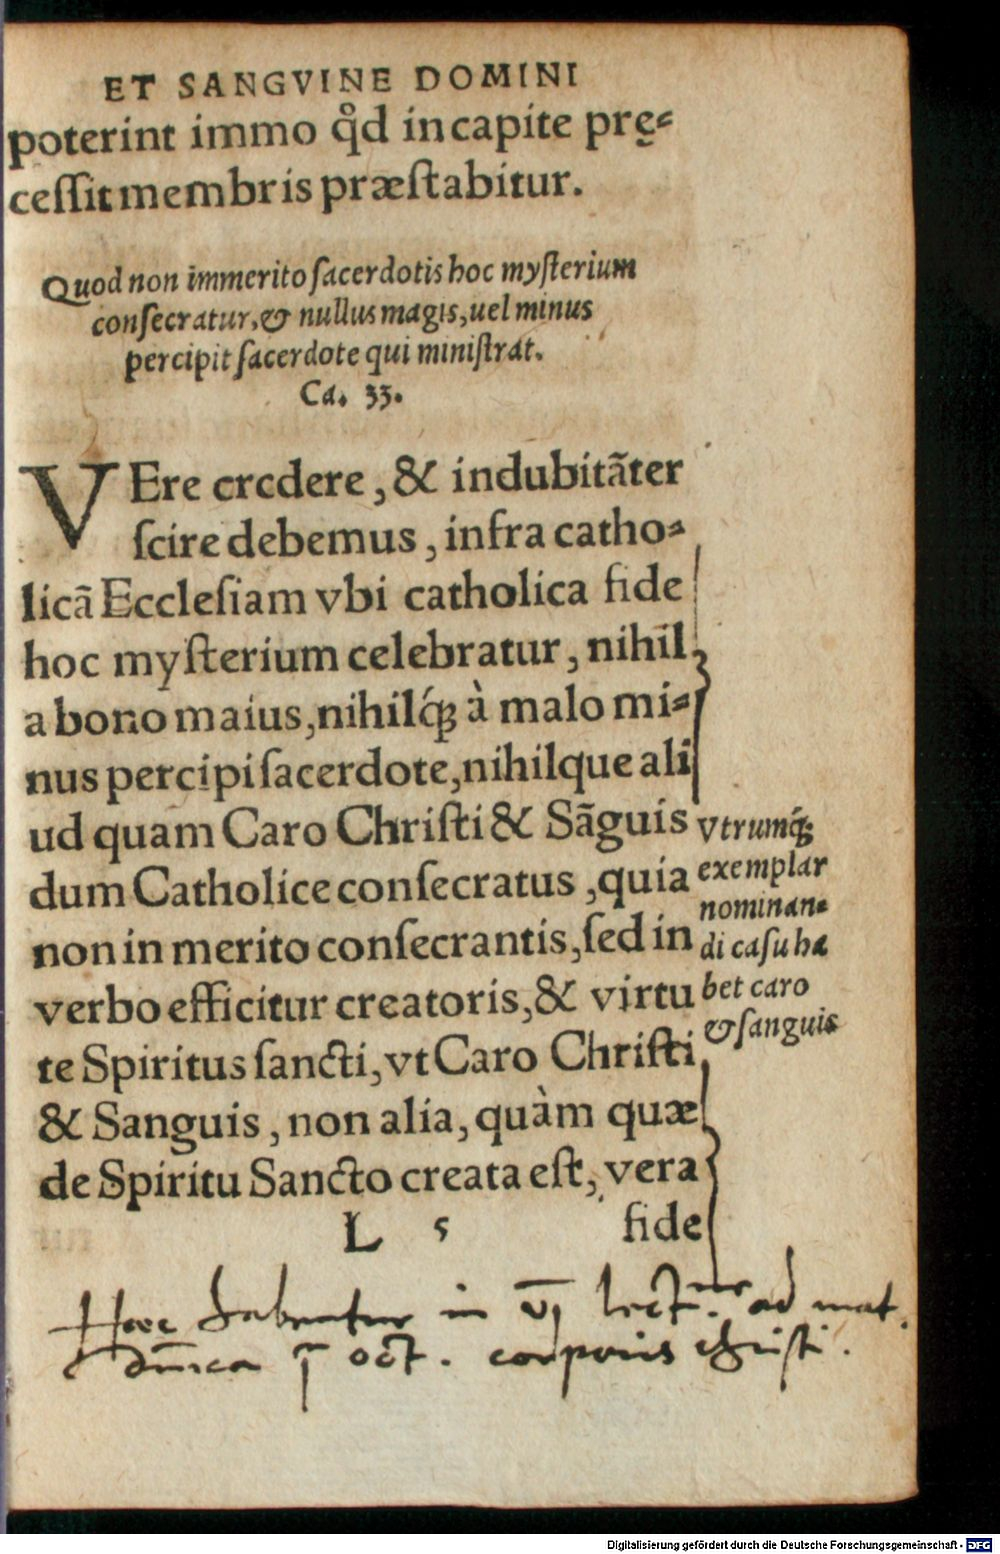 ET SANGVINE DOMINI
poterint immo qd̊ in capite prę⸗
cessit membris præstabitur.
Quod non immerito sacerdotis hoc mysterium
consecratur, & nullus magis, uel minus
percipit sacerdote qui ministrat.
Ca. 33.
VEre credere, & indubitãter
scire debemus, infra catho⸗
licã Ecclesiam vbi catholica fide
hoc mysterium celebratur, nihil
a bono maius, nihilq́ꝫ à malo mi⸗
nus percipi sacerdote, nihilque ali
ud quam Caro Christi & Sãguis
dum Catholice consecratus, quia
non in merito consecrantis, sed in
verbo efficitur creatoris, & virtu
te Spiritus sancti, vt Caro Christi
& Sanguis, non alia, quàm quæ
de Spiritu Sancto creata est, vera
L 5 fide
Vtrumq́ꝫ
exemplar
nominan⸗
di casu ha
bet caro
& sanguis
Haec habentur in vj lect. ad mat.
dn̄ica oct. corporis christi.